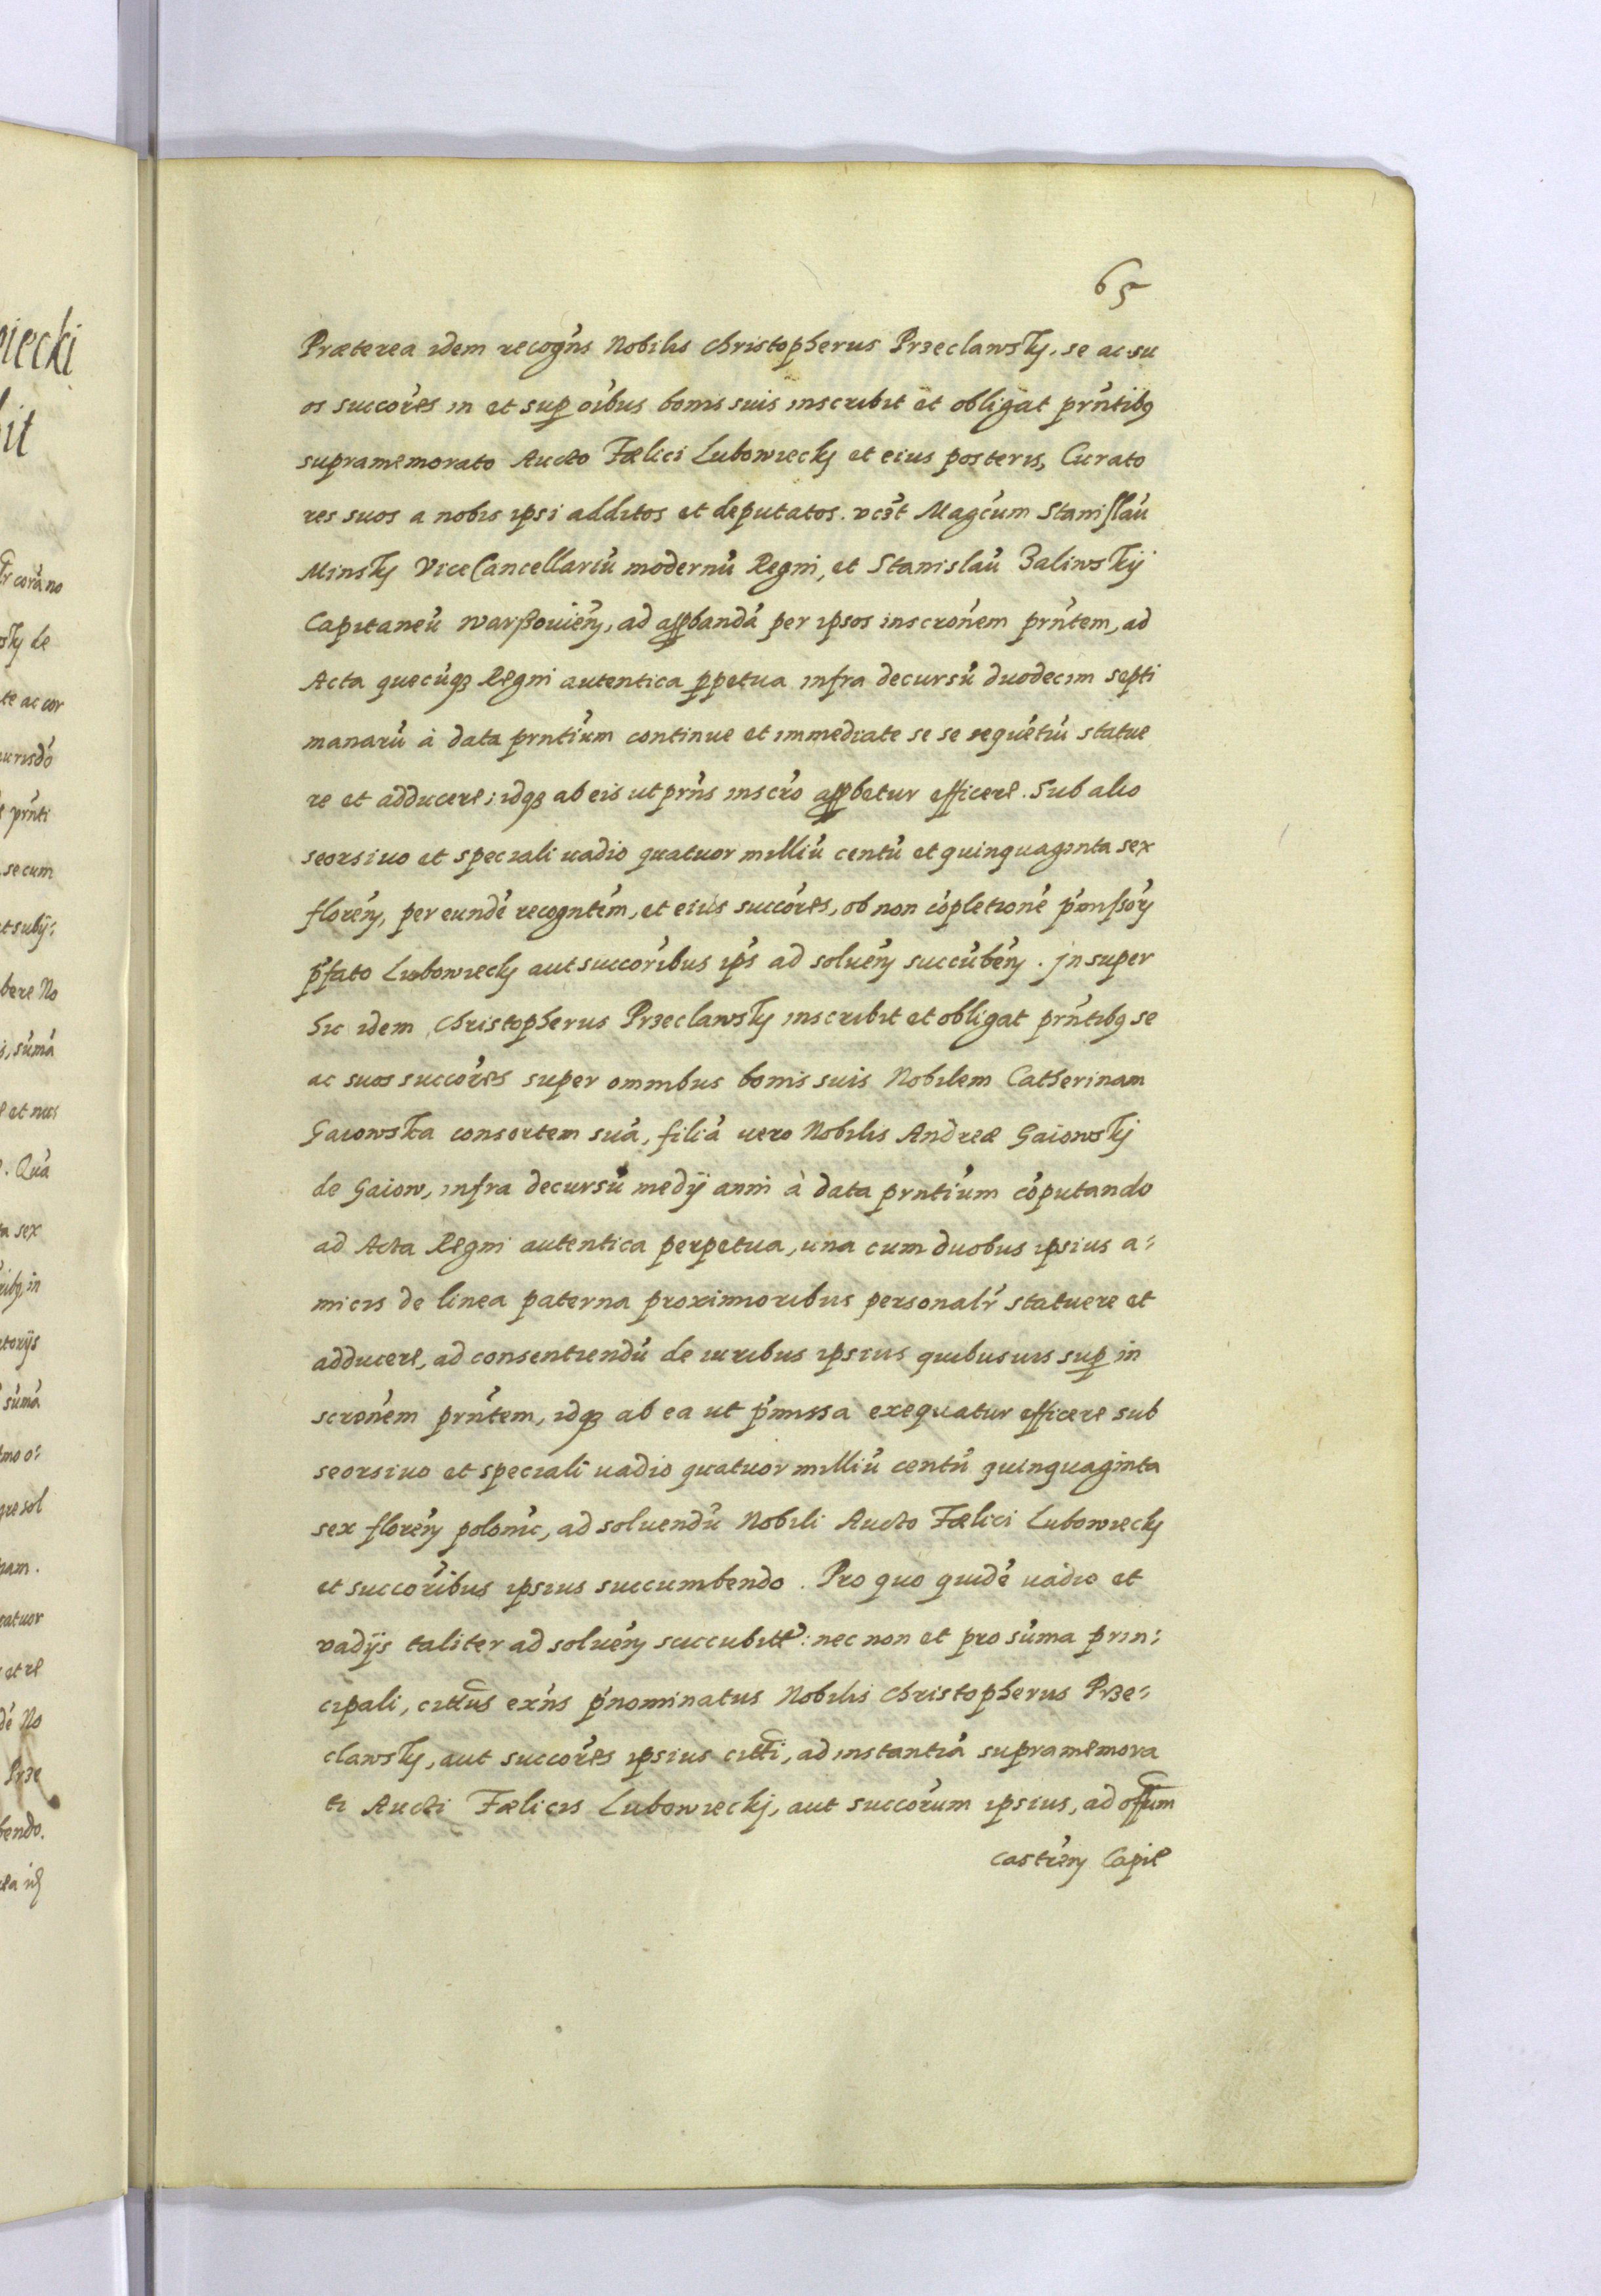 65
Præterea idem recogn̄s Nobilis Christopherus Przeclawsky, se ac su
os succōres in et sup oībus bonis suis inscribit et obligat prn̄tibq
supramemorato Aucto Fælici Lubowiecky et eius posteris, Curato
res suos a nobis ipsi additos et deputatos. vcz̄t Magcūm Stanislaū
Minsky ViceCancellariū modernū Regni, et Stanislaū Zaliwskij
Capitaneū warßouień, ad apbandā per ipsos inscronēm prn̄tem, ad
Acta quecūqz Regni autentica ppetua infra decursū duodecim septi
manarū à data prntiūm continue et immediate se se sequētiū statue
re et adducere; idqz ab eis ut prn̄s inscrō apbetur efficere. Sub alio
seorsiuo et speciali uadio quatuor milliū centū et quinquaginta sex
floreń, per eundē recogntēm, et eius succōres, ob non cōpletionē pm̄issoꝝ
pfato Lubowiecky aut succorībus ip̄s ad solueń succūbeń. jnsuper
hic idem Christopherus Przeclawsky inscribit et obligat prn̄tibq se
ac suos succōres super omnibus bonis suis Nobilem Catherinam
Gaiowska consortem suā, filiā uero Nobilis Andreæ Gaiowskj
de Gaiow, infra decursū medij anni à data prntiūm cōputando
ad Acta Regni autentica perpetua, una cum duobus ipsius a:
micis de linea paterna proximioribus personalr̄ statuere et
adducere, ad consentiendū de iuribus ipsius quibusuis sup in
scronēm prn̄tem, idqz ab ea ut pm̄issa exequatur efficere sub
seorsiuo et speciali uadio quatuor milliū centū quinquaginta
sex floreń polonīc, ad soluendū Nobili Aucto Fælici Lubowiecky
et succorībus ipsius succumbendo. Pro quo quidē uadio et
vadijs taliter ad solueń succubitt: nec non et pro sūma prin:
cipali, cittus exn̄s pnominatus Nobilis Christopherus Prze:
clawsky, aut succōres ipsius citti, ad instantiā supramemora
ti Aucti Fælicis Lubowieckj, aut succorūm ipsius, ad offum
castreń Capil